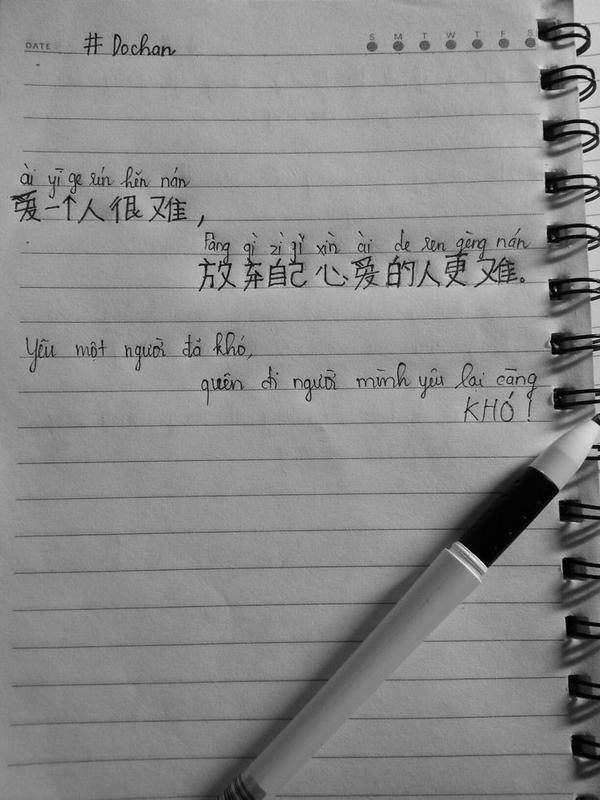 DATE # Dochan S M T W T F S
ài yī ge rén hěn nán
爱一个人很难，
Fàng qì zì jǐ xīn ài de ren gèng nán
放弃自己心爱的人更难。
Yêu một người đã khó,
quên đi người mình yêu lại càng
KHÓ !